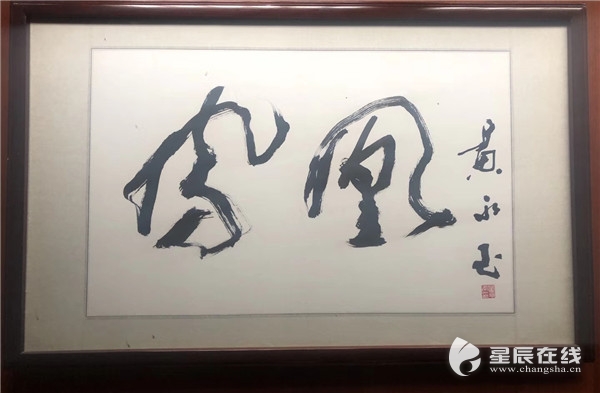 凤凰
黄永玉
星辰在线
www.changsha.cn